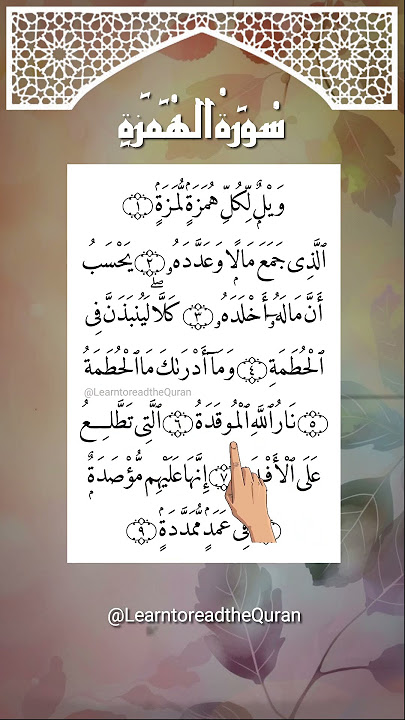 سُورَةُ الْهُمَزَةِ
وَيْلٌ لِّكُلِّ هُمَزَةٍ لُّمَزَةٍ ۝١
ٱلَّذِى جَمَعَ مَالًا وَعَدَّدَهُۥ ۝٢ يَحْسَبُ
أَنَّ مَالَهُۥٓ أَخْلَدَهُۥ ۝٣ كَلَّاۖ لَيُنۢبَذَنَّ فِى
ٱلْحُطَمَةِ ۝٤ وَمَآ أَدْرَىٰكَ مَا ٱلْحُطَمَةُ
@LearntoreadtheQuran
۝٥ نَارُ ٱللَّهِ ٱلْمُوقَدَةُ ۝٦ ٱلَّتِى تَطَّلِعُ
عَلَى ۝٧ إِنَّهَا عَلَيْهِم مُّؤْصَدَةٌ
فِى عَمَدٍ مُّمَدَّدَةٍۭ ۝٩
@LearntoreadtheQuran